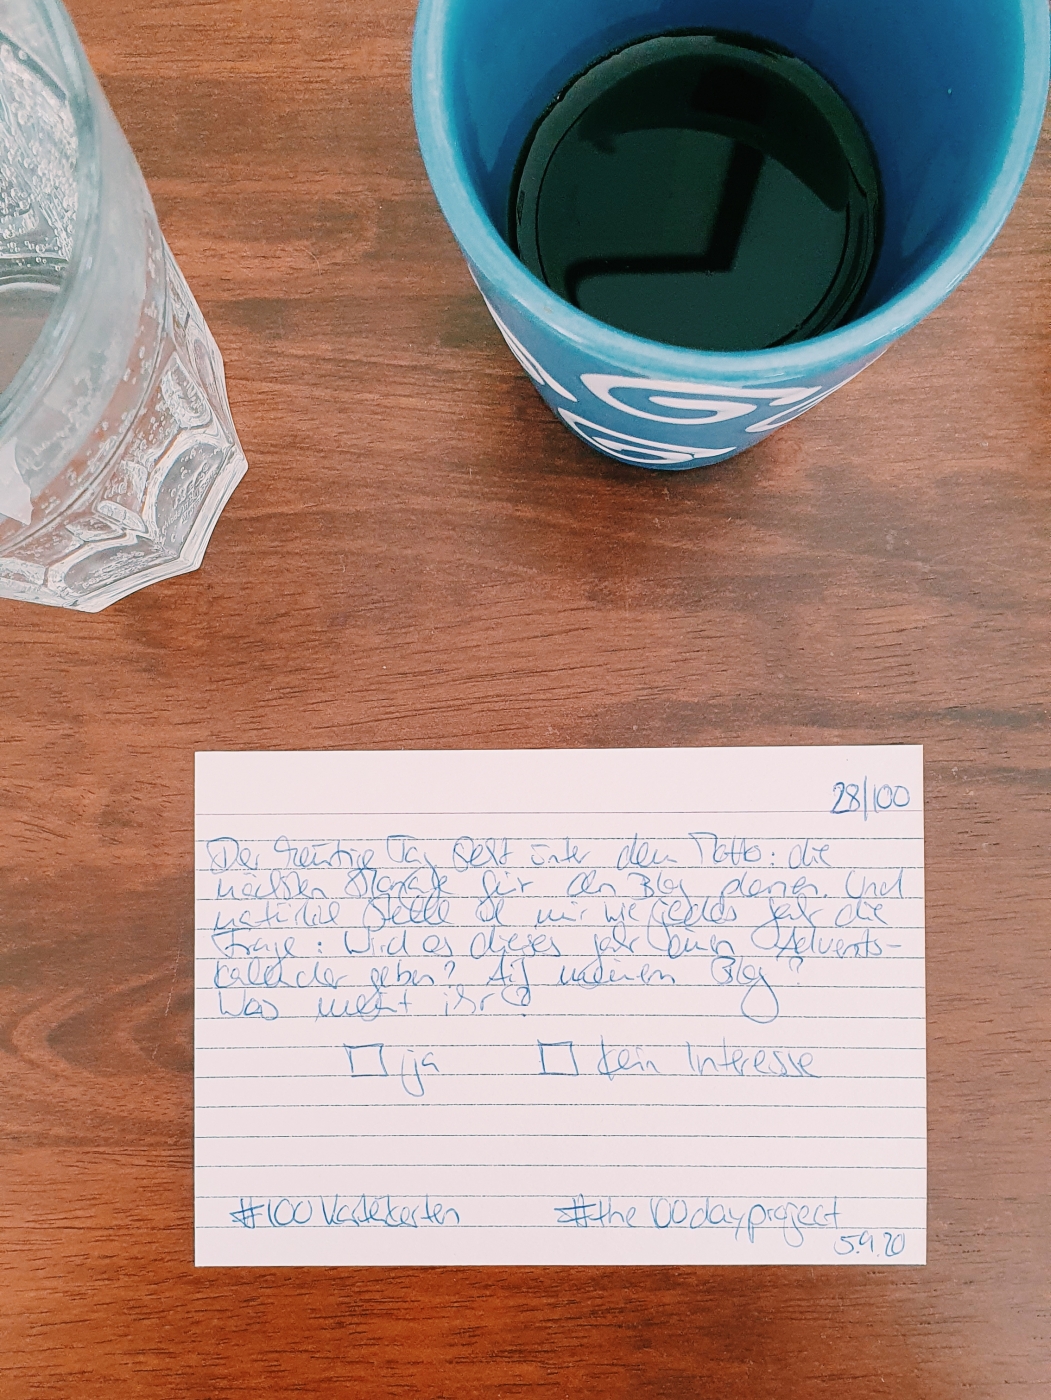 28/100
Der heutige Tag steht unter dem Motto: die
nächsten Monate für den Blog planen. Und
natürlich stelle ich mir wie jedes Jahr die
Frage: Wird es dieses Jahr einen Advents-
kalender geben? Auf meinem Blog?
Was meint ihr?
ja kein Interesse
#100Karteikarten #the100dayproject
5.9.20